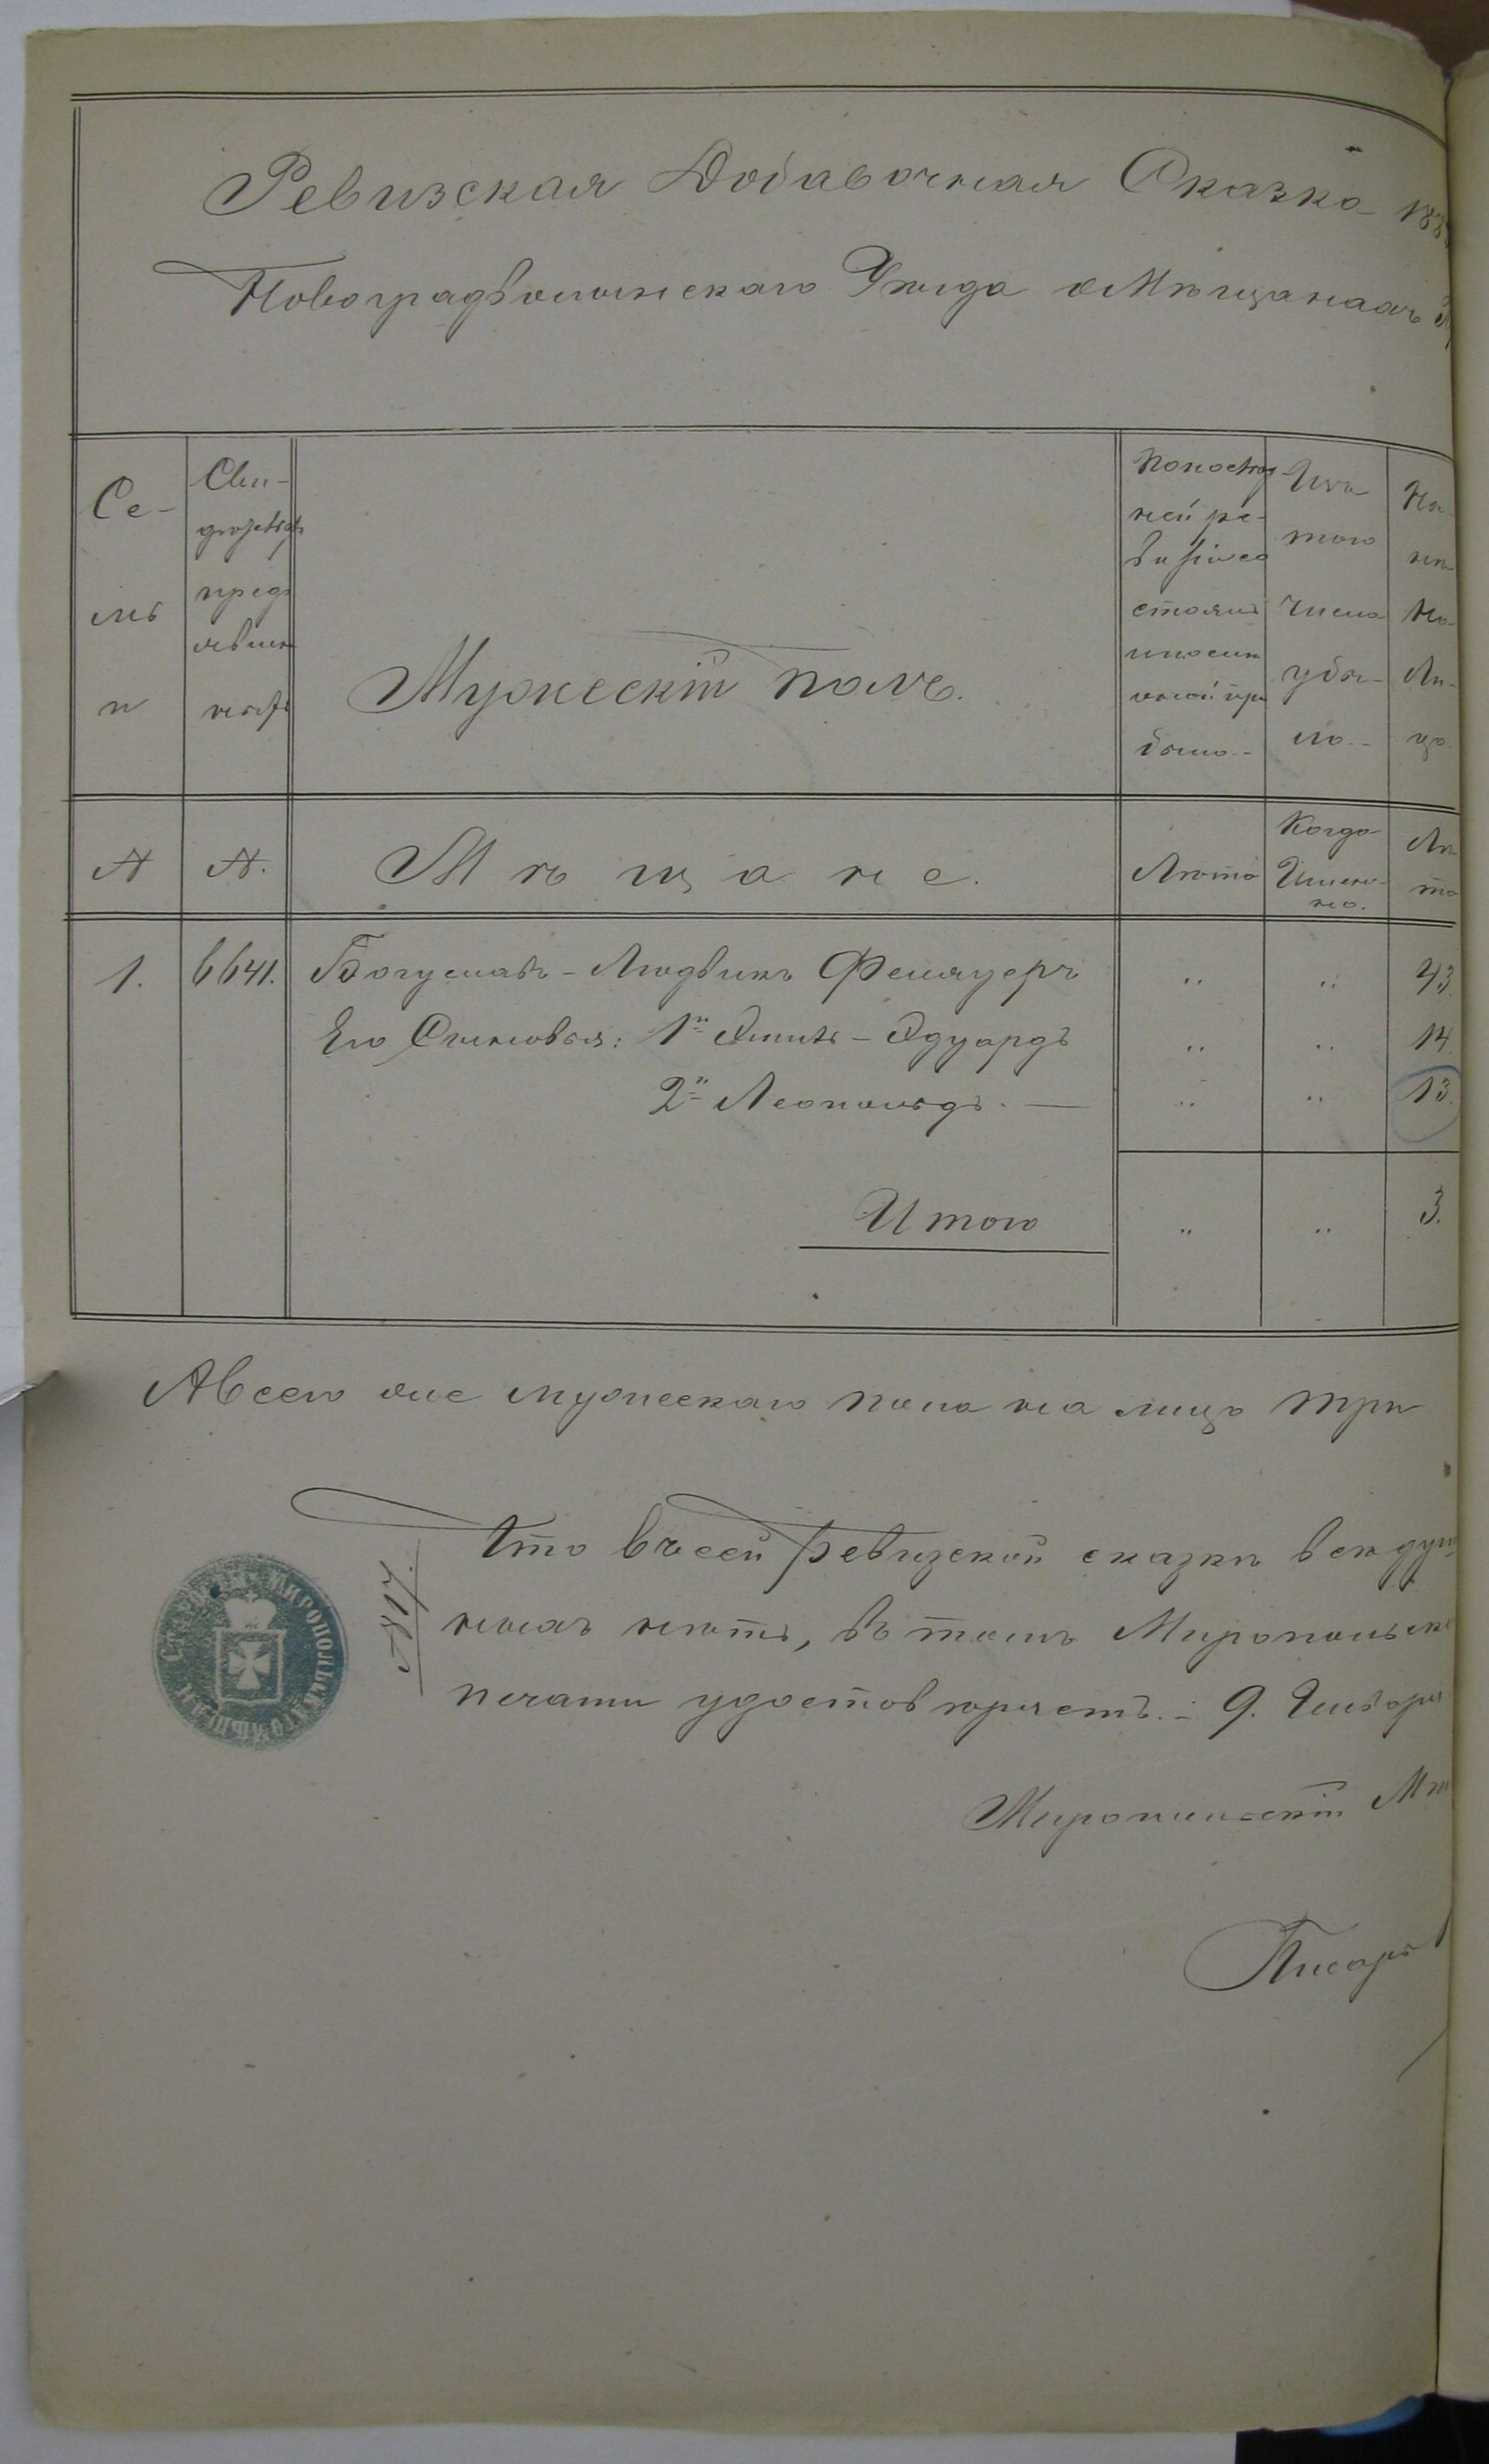 Ревизская Добавочная Сказка 188
Новоградволынскаго Уѣзда о Мѣщанахъ
Се-
мь
и
Сви-
дѣтельст
пред
явлен
ныхъ
Мужескій полъ.
По послѣд
ней ре-
визіи со
стояло
и послѣ
оной при
было.-
Изъ
того
числа
убы-
ло.-
Ны
нѣ
На-
Ли-
цо.
№
№.
Мѣщане.
Лѣта
Когда
Именно.
Лѣ
та
1.
6641.
Богуславъ-Людвикъ Фельауеръ
„
„
43.
Его Сыновья: 1й Эмиль-Эдуардъ
„
„
14.
2й Леопольдъ.
„
„
13.
Итого
„
„
3.
А всего же мужескаго пола на лицо три
Что въ сей Ревизской сказкѣ всѣ душ
ныхъ нѣтъ, въ томъ Миропольск
№17.
печати удостовѣряетъ. - 9. Января
Миропольскій Мѣ
Писарь
МИРОПОЛЬСКАГО МѢЩАН